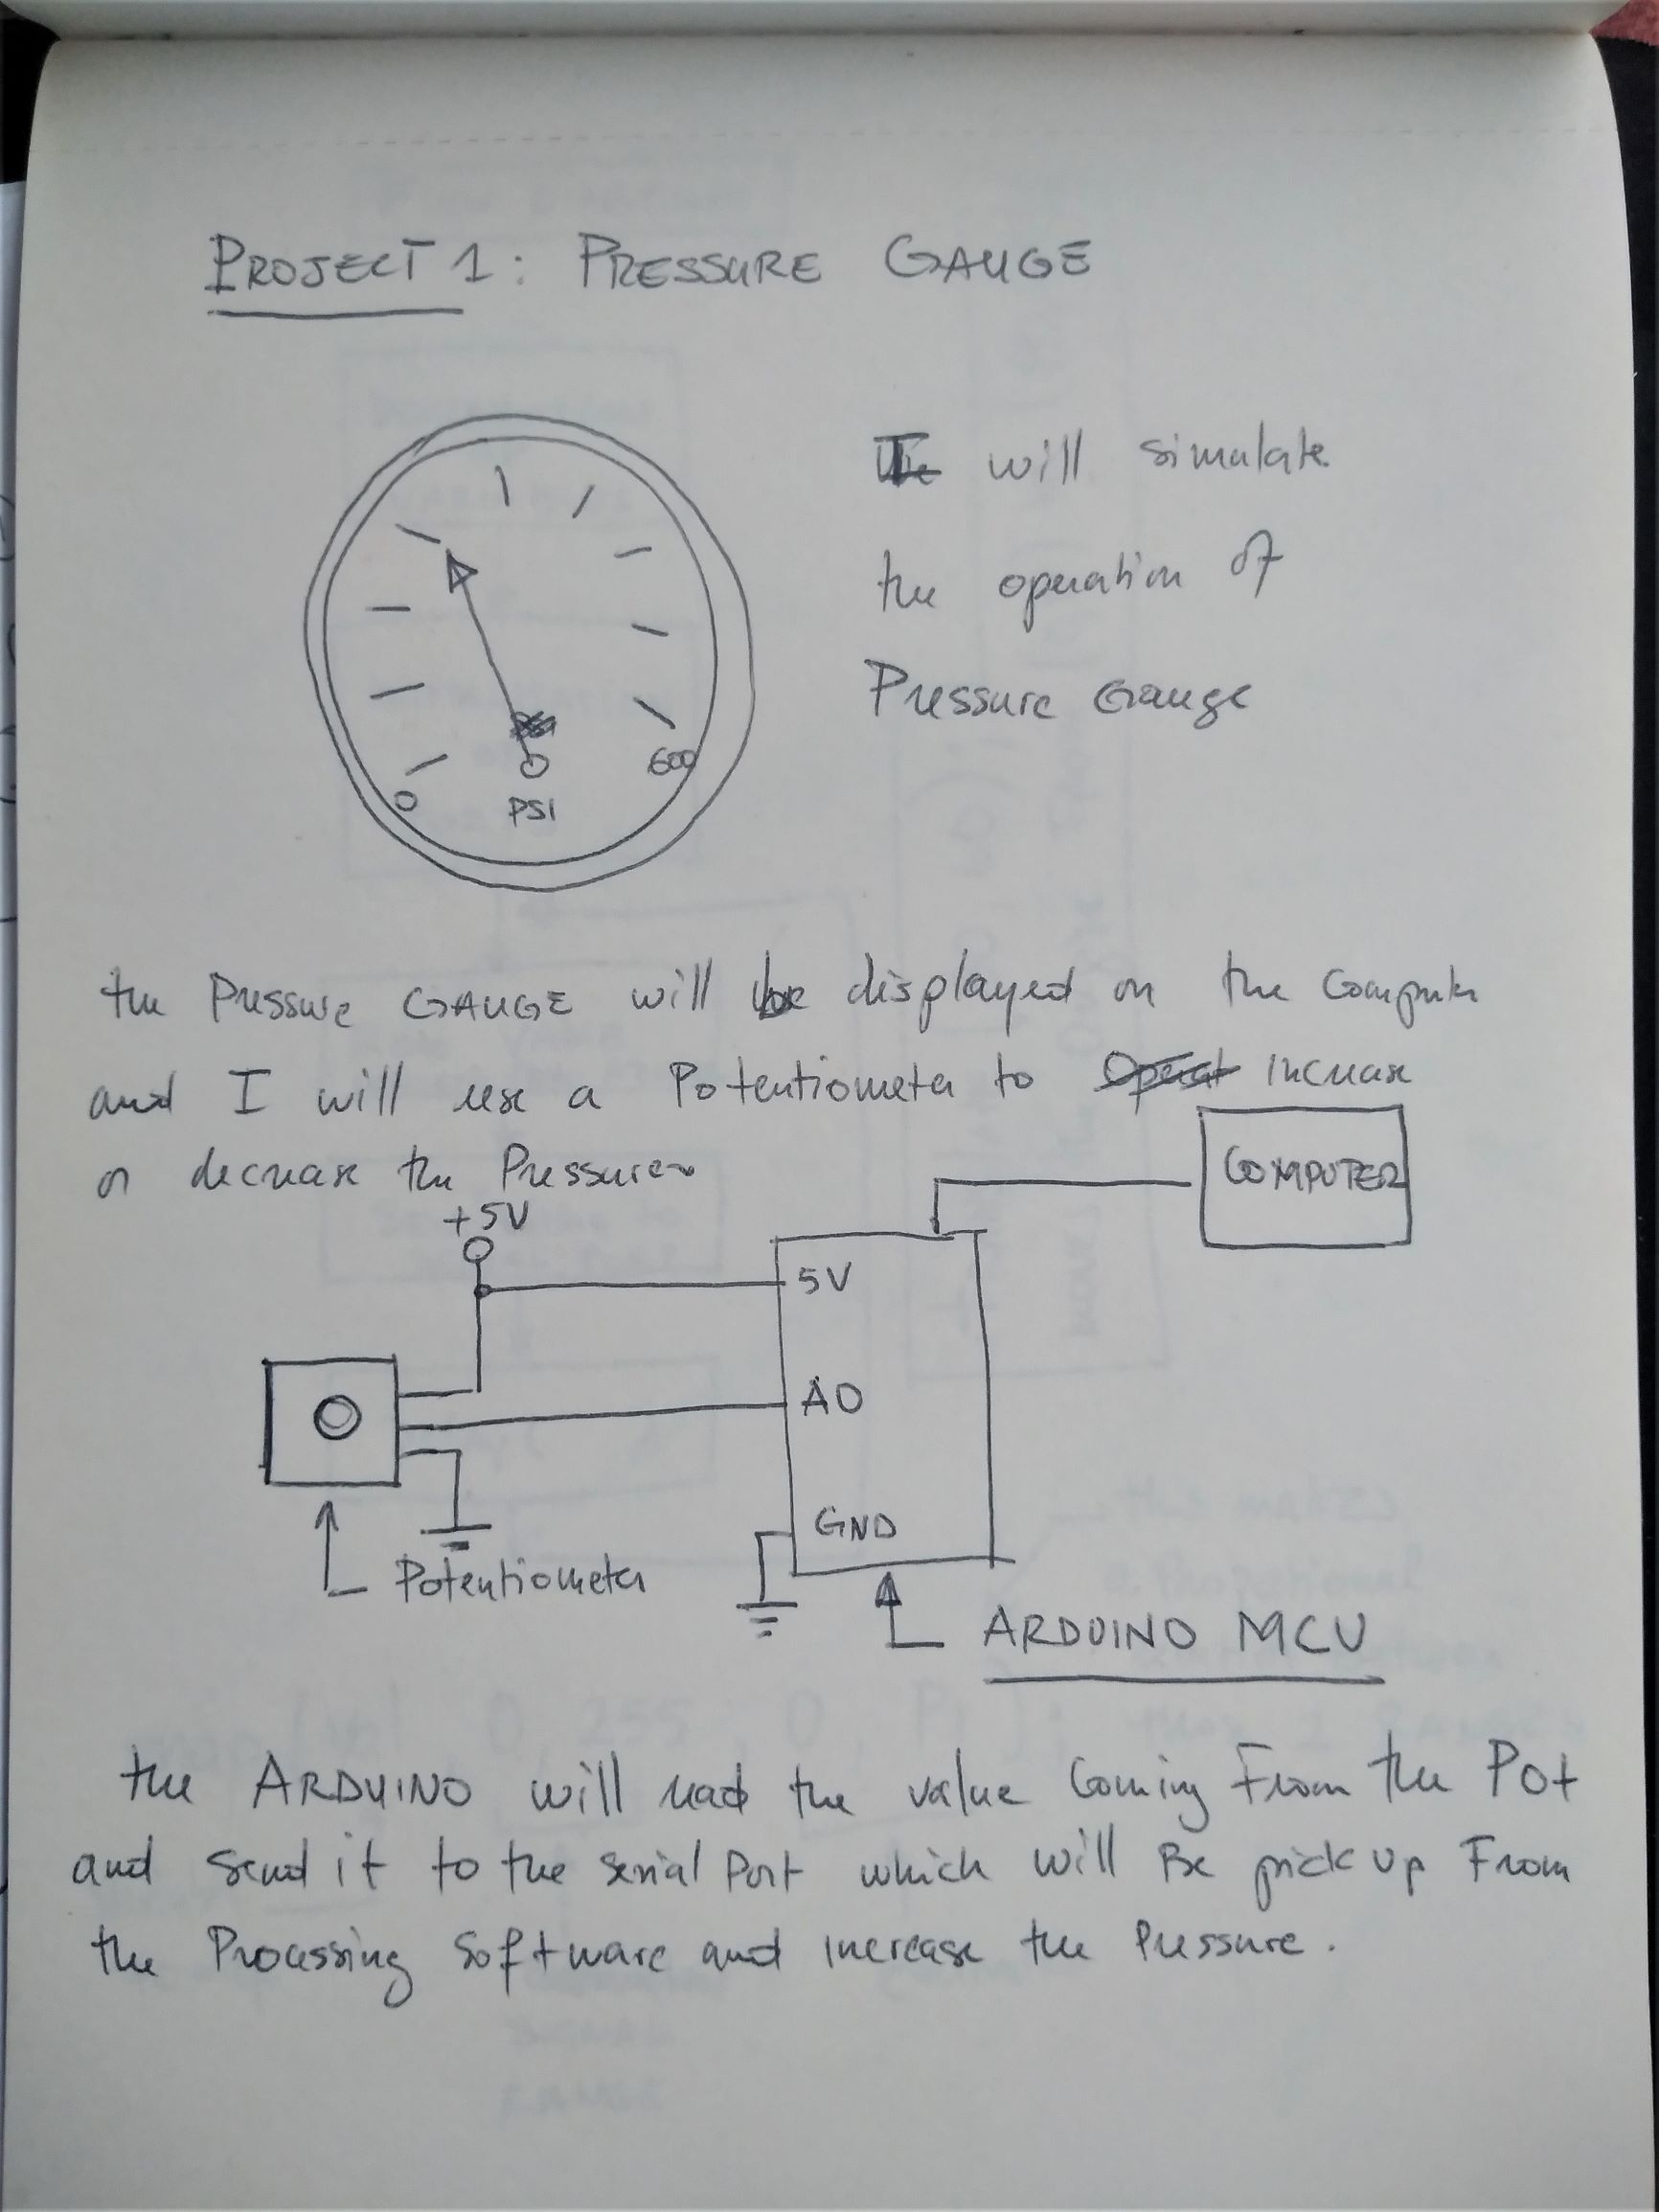 PROJECT 1: PRESSURE GAUGE
I will simulate
the operation of
Pressure Gauge
0
600
PSI
the Pressure GAUGE will be displayed on the Computer
and I will use a Potentiometer to Increase
or decrease the Pressure
+5V
COMPUTER
5V
A0
GND
Potentiometer
ARDUINO MCU
the ARDUINO will read the value Coming From the Pot
and send it to the serial Port which will Be pick up From
the Processing Software and increase the Pressure.